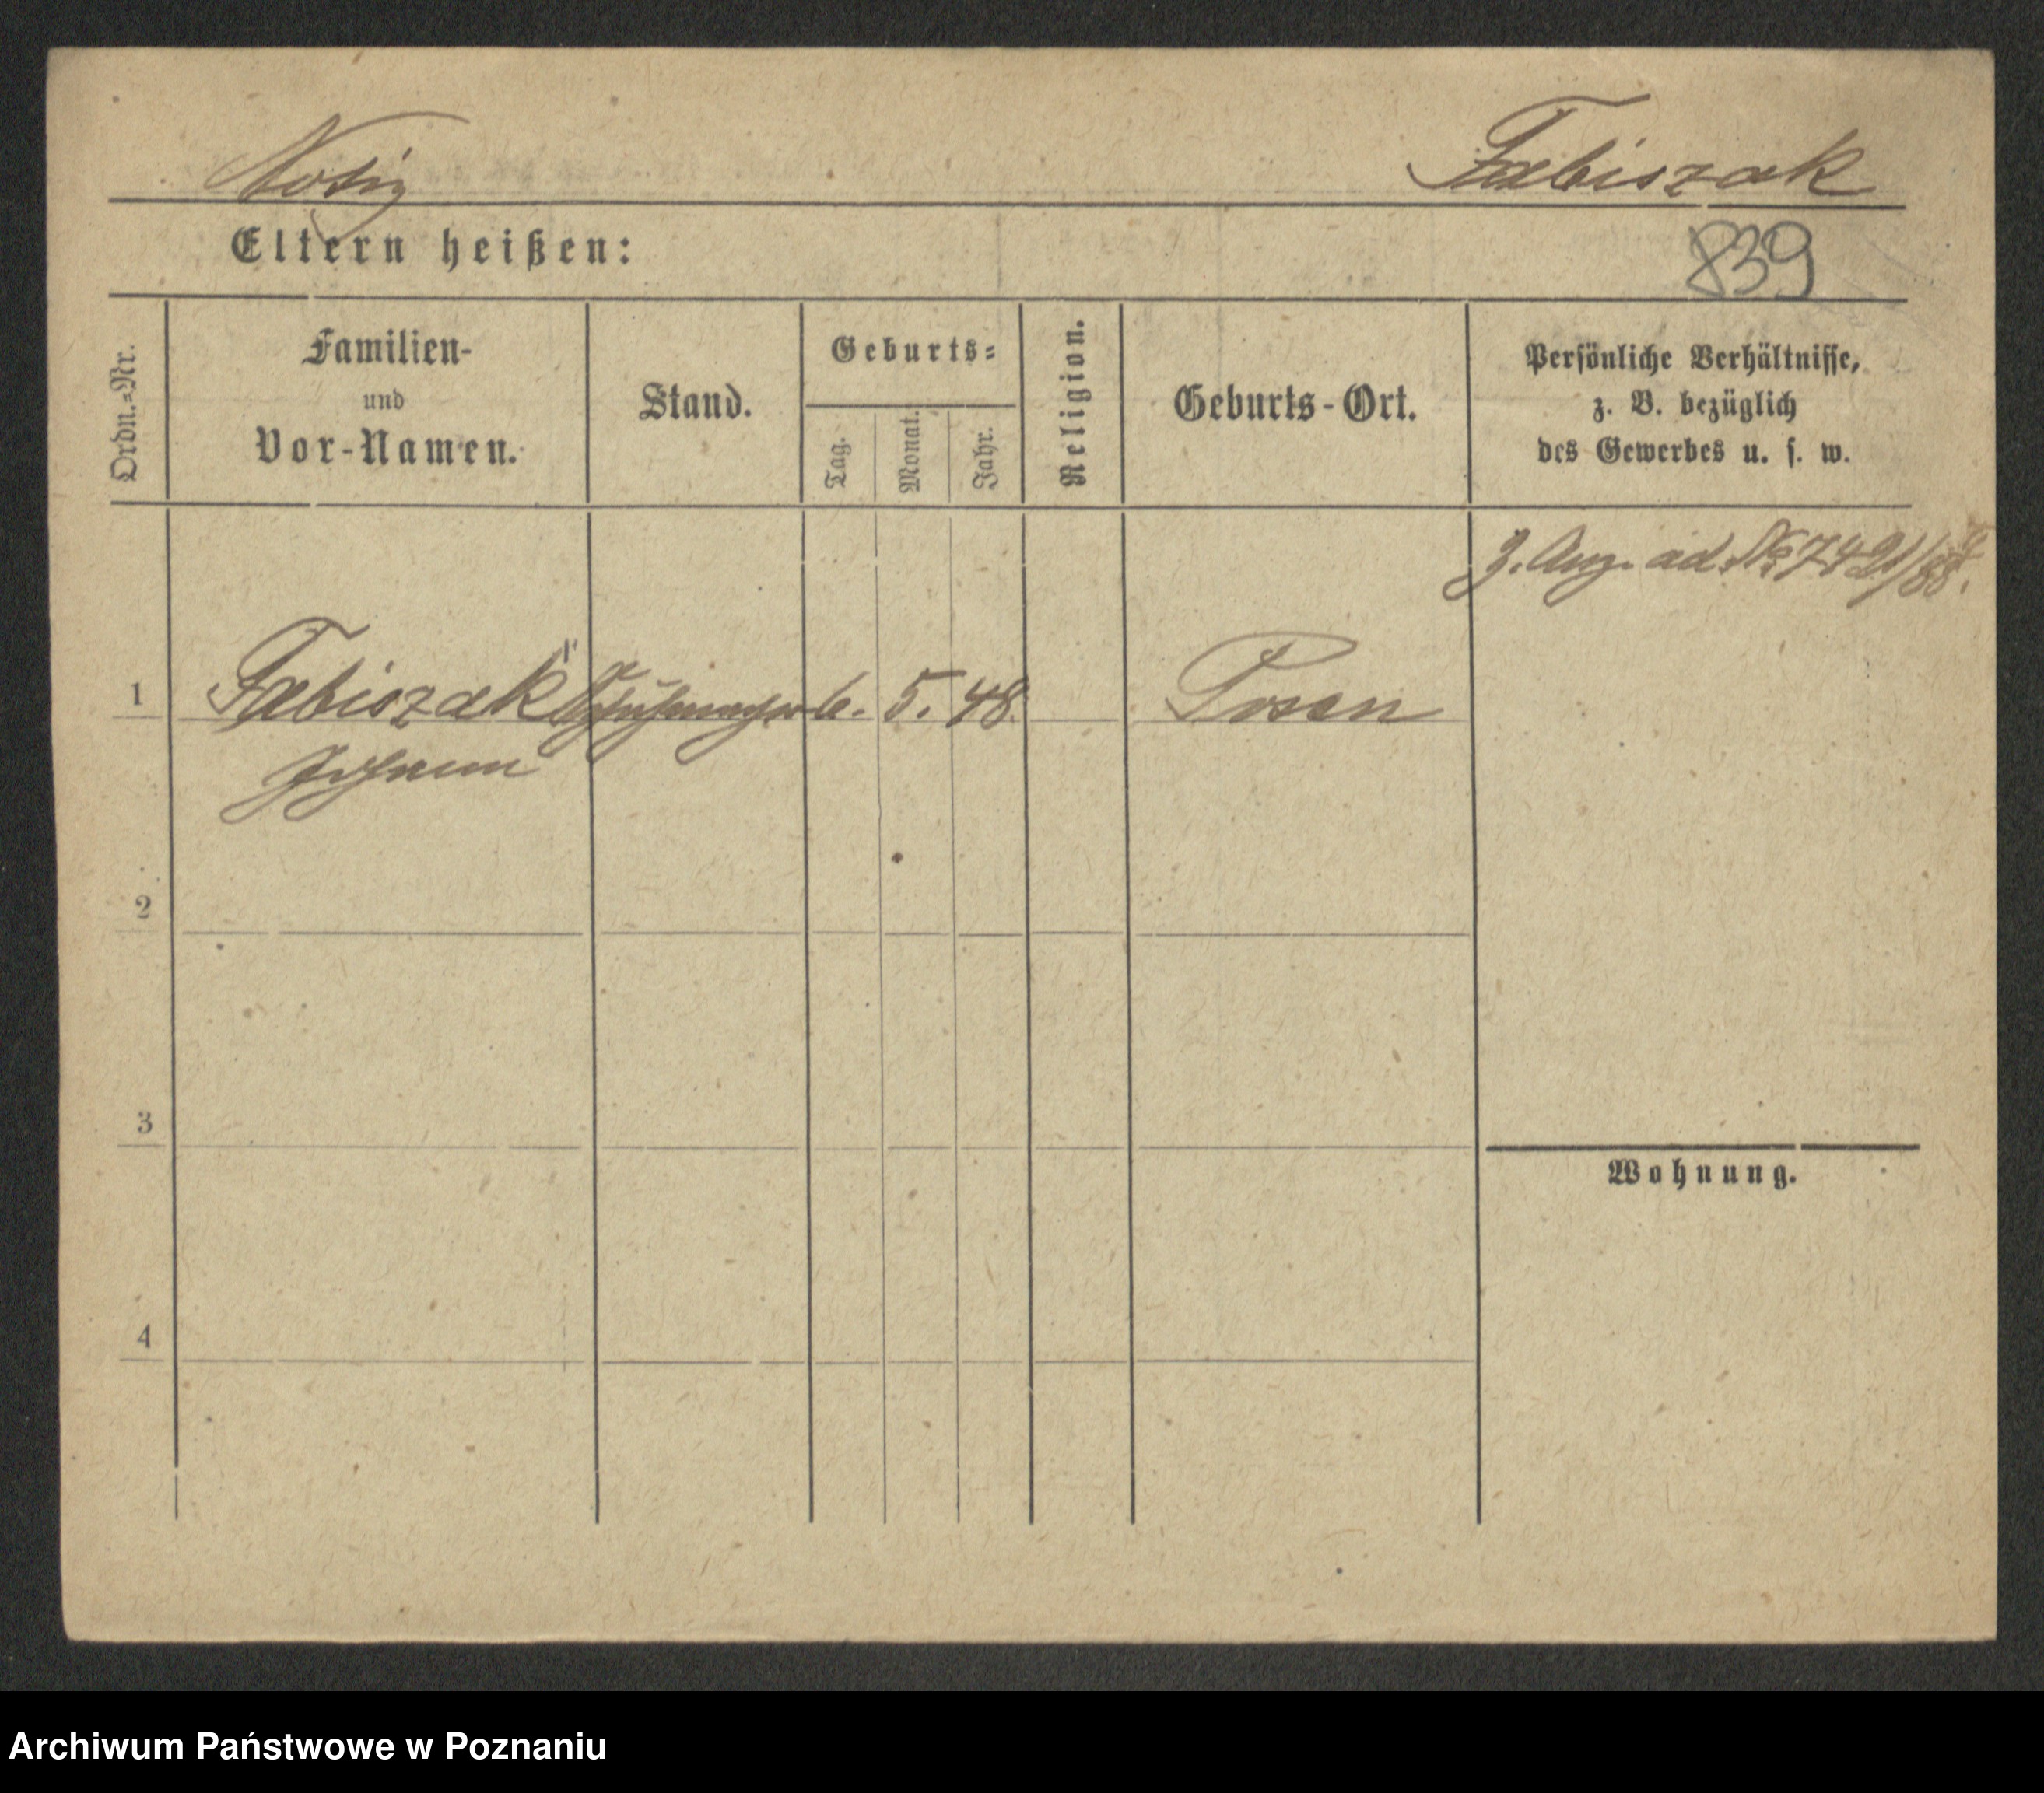 Notiz
Fabiszak
Eltern heißen:
839
Ordn.=Nr.
Familien-
und
Vor-Namen.
Stand.
Geburts=
Tag.
Monat.
Jahr.
Religion.
Geburts-Ort.
Persönliche Verhältnisse,
z. B. bezüglich
des Gewerbes u. s. w.
z. Anz. ad No 7421/88.
1 Fabiszak Schuhmacher 6. 5. 48. Posen
Johann
2
3
Wohnung.
4
Archiwum Państwowe w Poznaniu